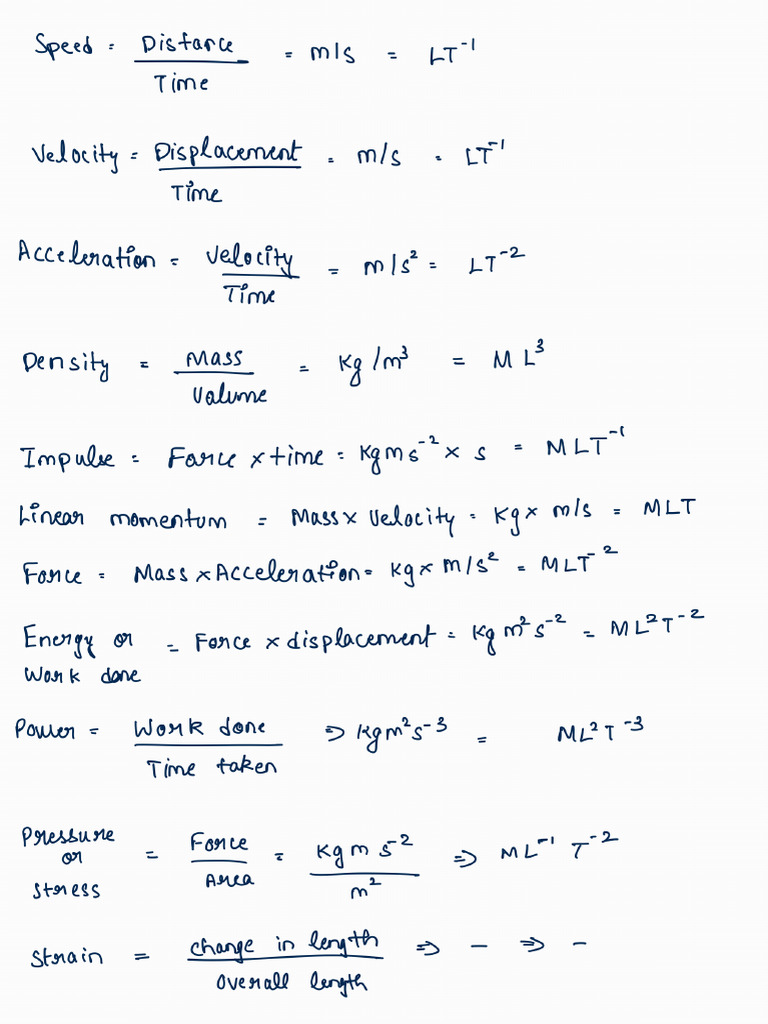 Speed = Distance / Time = m/s = LT⁻¹
Velocity = Displacement / Time = m/s = LT⁻¹
Acceleration = Velocity / Time = m/s² = LT⁻²
Density = Mass / Volume = Kg/m³ = ML³
Impulse = Force × time = Kgms⁻² × s = MLT⁻¹
Linear momentum = Mass × Velocity = Kg × m/s = MLT
Force = Mass × Acceleration = Kg × m/s² = MLT⁻²
Energy or Work done = Force × displacement = Kg m² s⁻² = ML²T⁻²
Power = Work done / Time taken ⇒ Kgm²s⁻³ = ML²T⁻³
Pressure or Stress = Force / Area = Kg m s⁻² / m² ⇒ ML⁻¹ T⁻²
Strain = change in length / overall length ⇒ – ⇒ –